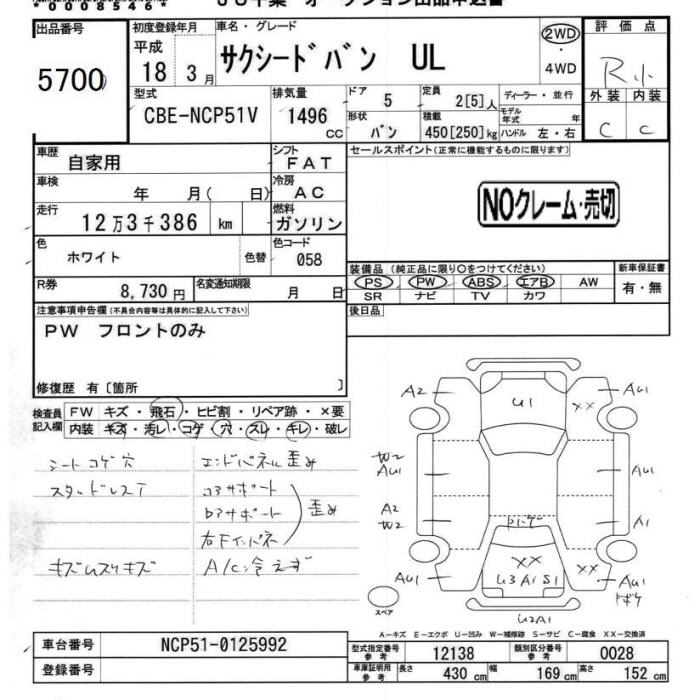 00085464
JU千葉 オークション出品申込書
出品番号 初度登録年月 車名・グレード 評価点
5700 平成 18 3月 サクシードバン UL 2WD ・ 4WD R小
型式 排気量 ドア 定員 ディーラー・並行 外装 内装
CBE-NCP51V 1496 CC 5 2[5]人 モデル年式 年 C C
形状 バン 積載 450[250]kg ハンドル 左・右
車歴 自家用 シフト FAT セールスポイント(正常に機能するものに限ります)
車検 年 月( 日) 冷房 AC
NOクレーム・売切
走行 12万3千386 km 燃料 ガソリン
色 ホワイト 色替 色コード 058
装備品(純正品に限り○をつけてください) 新車保証書
PS PW ABS エアB AW 有・無
SR ナビ TV カワ
R券 8,730円 名変通知期限 月 日 後日品
注意事項申告欄(不具合内容等は具体的に記入して下さい)
PW フロントのみ
修復歴 有[箇所 ]
検査員記入欄 FW キズ・飛石・ヒビ割・リペア跡・×要
内装 キズ・汚レ・コゲ・穴・スレ・キレ・破レ
シートコゲ穴 エンドパネル歪み
コアサポート
歪み
右下インパネ
キズムスリキズ A/C冷えず
A2 U1 XX AU1
W2 AU1 AU1
A2 W2 A1
XX XX
AU1 U3 A1 S1 AU1
U2A1
スペア
A-キズ E-エクボ U-凹み W-補修跡 S-サビ C-腐食 XX-交換済
車台番号 NCP51-0125992
登録番号
型式指定番号 参考 12138 類別区分番号 参考 0028
車庫証明用 参考 長さ 430 cm 幅 169 cm 高さ 152 cm